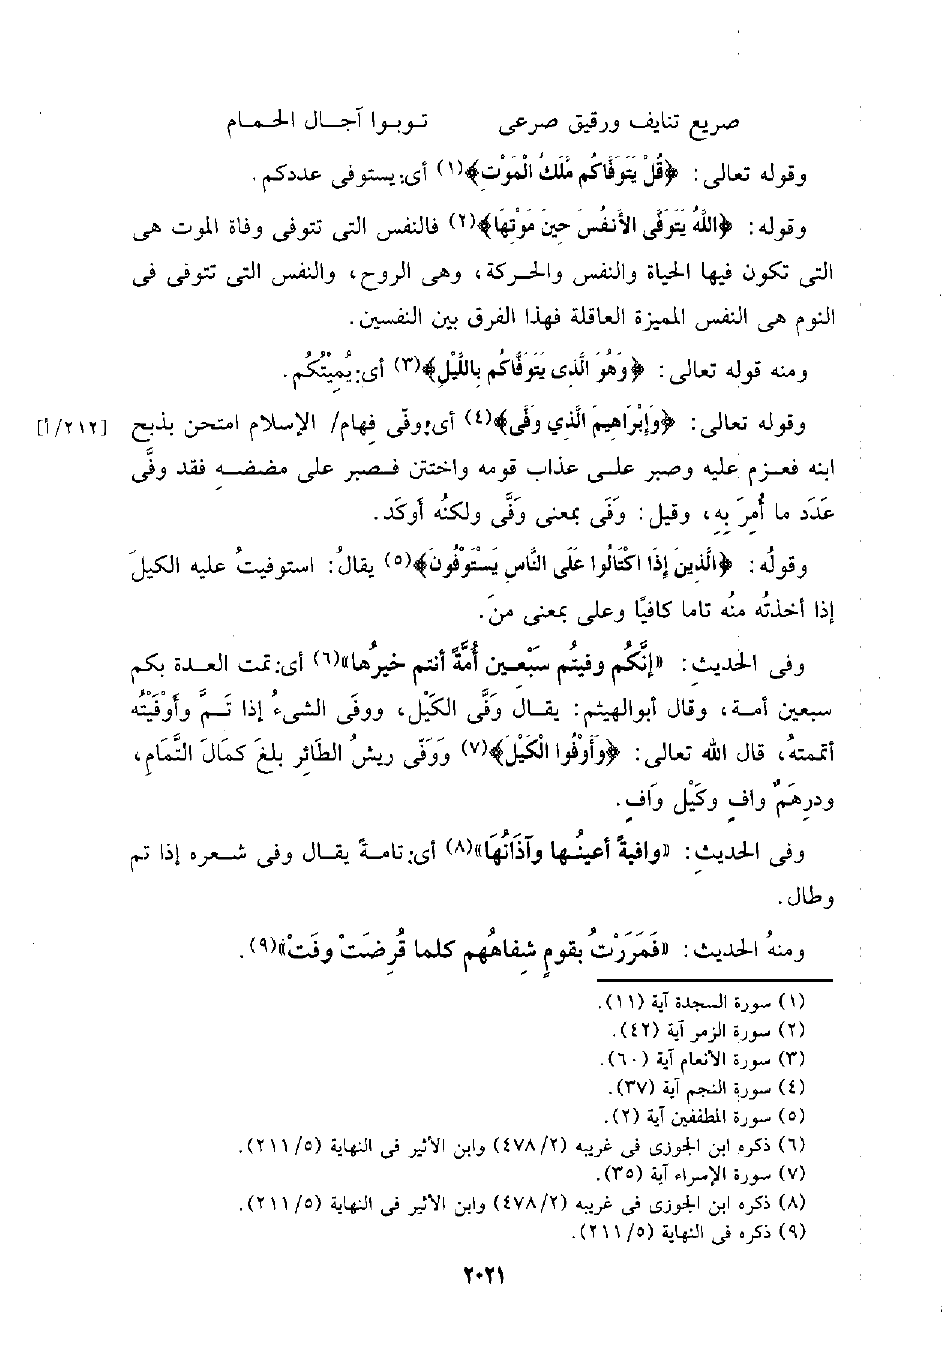 صريع تنايف ورقيق صرعى توبوا آجال الحمام
وقوله تعالى: ﴿قُلْ يَتَوَفَّاكُم مَّلَكُ الْمَوْتِ﴾(١) أى: يستوفى عددكم.
وقوله: ﴿اللَّهُ يَتَوَفَّى الأَنفُسَ حِينَ مَوْتِهَا﴾(٢) فالنفس التى تتوفى وفاة الموت هى
التى تكون فيها الحياة والنفس والحركة، وهى الروح، والنفس التى تتوفى فى
النوم هى النفس المميزة العاقلة فهذا الفرق بين النفسين.
ومنه قوله تعالى: ﴿وَهُوَ الَّذِى يَتَوَفَّاكُم بِاللَّيْلِ﴾(٣) أى: يُمِيتُكُم.
وقوله تعالى: ﴿وَإِبْرَاهِيمَ الَّذِي وَفَّى﴾(٤) أى: وفّى فهام/ الإسلام امتحن بذبح [٢١٢/أ]
ابنه فعزم عليه وصبر على عذاب قومه واختتن فصبر على مضضه فقد وفَّى
عَدَد ما أُمِرَ بِهِ، وقيل: وَفَى بمعنى وَفَّى ولكنُه أوكَد.
وقولُه: ﴿الَّذِينَ إِذَا اكْتَالُوا عَلَى النَّاسِ يَسْتَوْفُونَ﴾(٥) يقالُ: استوفيتُ عليه الكيلَ
إذا أخذتُه منُه تاما كافيًا وعلى بمعنى منَ.
وفى الحديثِ: «إنَّكُم وفيتُم سَبْعين أُمَّةً أنتم خيرُها»(٦) أى: تمت العدة بكم
سبعين أمة، وقال أبوالهيثم: يقال وَفَّى الكَيْل، ووفى الشىءُ إذا تَمَّ وأَوْفَيْتُه
أتممتهُ، قال الله تعالى: ﴿وَأَوْفُوا الْكَيْلَ﴾(٧) وَوَفَّى ريشُ الطَائِر بلغَ كمَالَ التَّمام،
ودرِهَمٌ وافٍ وكَيْل وَافٍ.
وفى الحديثِ: «وافيةً أعينُها وآذَانُهَا»(٨) أى: تامةً يقال وفى شعره إذا تم
وطال.
ومنهُ الحديث: «فَمَرَرْتُ بقومٍ شِفاهُهم كلما قُرِضَتْ وفَتْ»(٩).
(١) سورة السجدة آية (١١).
(٢) سورة الزمر آية (٤٢).
(٣) سورة الأنعام آية (٦٠).
(٤) سورة النجم آية (٣٧).
(٥) سورة المطففين آية (٢).
(٦) ذكره ابن الجوزى فى غريبه (٤٧٨/٢) وابن الأثير فى النهاية (٢١١/٥).
(٧) سورة الإسراء آية (٣٥).
(٨) ذكره ابن الجوزى فى غريبه (٤٧٨/٢) وابن الأثير فى النهاية (٢١١/٥).
(٩) ذكره فى النهاية (٢١١/٥).
٢٠٢١